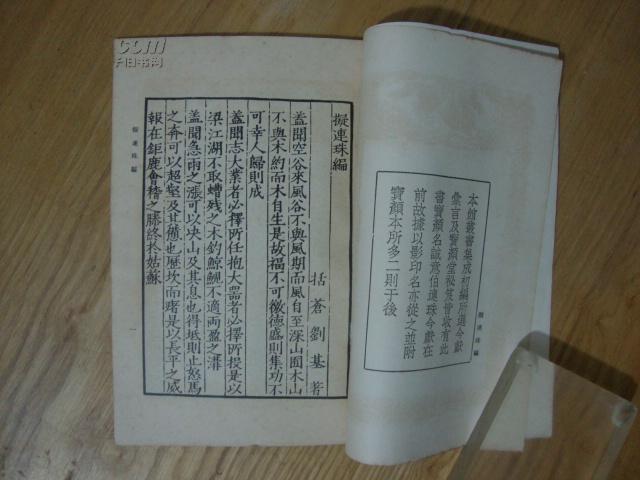 本館叢書集成初編所選今獻
彙言及寶顏堂祕笈皆收有此
書寶顏名誠意伯連珠今獻在
前故據以影印名亦從之並附
寶顏本所多二則于後
擬連珠編
擬連珠編
括蒼劉基著
蓋聞空谷來風谷不與風期而風自至深山囿木山
不與木約而木自生是故福不可徼德盛則集功不
可幸人歸則成
蓋聞志大業者必擇所任抱大器者必擇所投是以
梁江湖不取螬殘之木釣鯨鯢不適兩盈之溝
蓋聞急雨之漲可以决山及其息也得坻則止怒馬
之奔可以超壑及其憊也歷坎而踣是以長平之威
報在鉅鹿會稽之勝終於姑蘇
擬連珠編
一